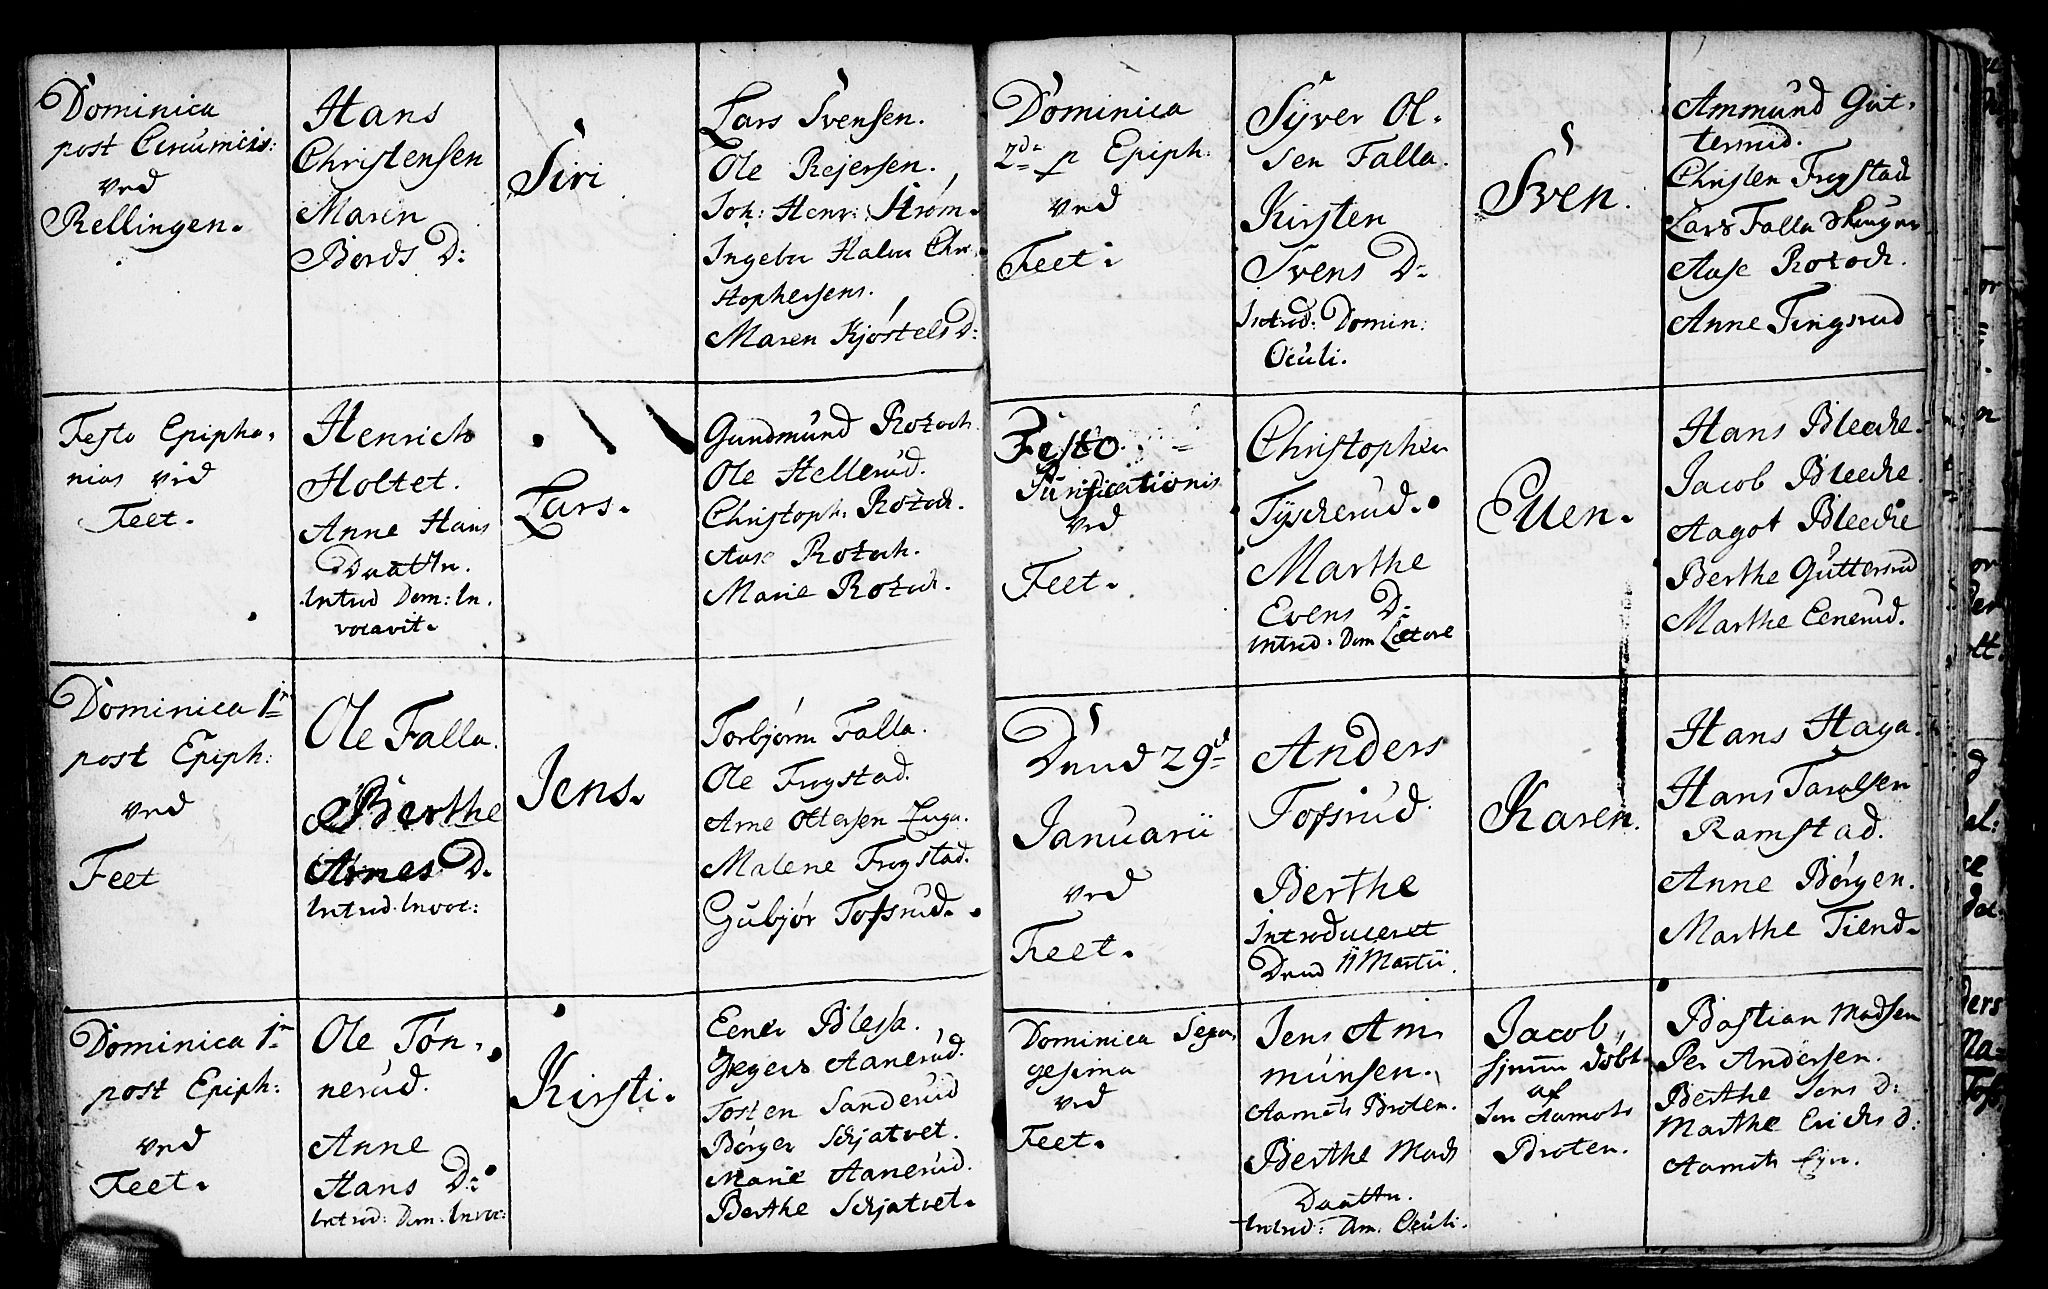 Dominica
post Circumcis:
ved
Rellingen.
Hans
Christensen
Maren
Bords D:
Siri
Lars Svensen.
Ole Rejersen.
Joh: Henr: Strøm.
Ingebor Halvor Chri-
stophersens.
Maren Kjøstels D:
Festo Epipha-
nias ved
Feet.
Henrich
Holtet.
Anne Hans
Daattr.
Introd Dom: In-
vocavit.
Lars.
Gundmund Rotoch.
Ole Hellerud.
Christoph. Rotoch.
Aase Rotoch.
Marie Rotoch.
Dominica 1n
post Epiph:
ved
Feet
Ole Falla.
Berthe
Arnes D.
Introd. Invoc:
Jens.
Torbjørn Falla.
Ole Frogstad.
Arne Ottersen Enga.
Malene Frogstad.
Gubjør Tofsrud.
Dominica 1n
post Epiph:
ved
Feet.
Ole Tøn-
nerud.
Anne
Hans D:
Introd: Dom. Invoc:
Kirsti.
Eener Blessa.
Gregers Aanerud.
Tosten Sanderud
Børger Schjatvet.
Marie Aanerud.
Berthe Schjatvet.
Dominica
2da p Epiph:
ved
Feet.
Syver Ol-
sen Falla.
Kirsten
Svens D:
Introd: Domin:
Oculi.
Sven.
Ammund Gut-
tersrud.
Christen Frogstad
Lars Falla
Aase Rotoch.
Anne Tingsrud
Festo
Purificationis
ved
Feet.
Christopher
Tyscherud.
Marthe
Evens D:
Introd: Dom Lætare
Even.
Hans Bleeche.
Jacob Bleeche.
Aagot Bleeche
Berthe Guttersrud
Marthe Eenerud.
Dend 29de
Januarii
ved
Feet.
Anders
Tofsrud.
Berthe
Introduceret
Dend 11 Martii.
Karen.
Hans Haga.
Hans Tarolsen
Ramstad.
Anne Børgen.
Marthe Tiend.
Dominica Sexa-
gesima
ved
Feet.
Jens Am-
munsen.
Aamots Broten.
Berthe Mads
Daattr.
Introd: Dm. Oculi.
Jacob,
hjemme døbt
af
Jen Aamots
Broten.
Bastian Madsen
Per Andersen.
Berthe Jens D:
Marthe Erichs D:
Aamots Eyer.